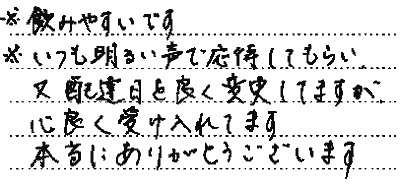 ※飲みやすいです
※いつも明るい声で応待してもらい、
又配達日を良く変更してますが、
心良く受け入れてます
本当にありがとうございます